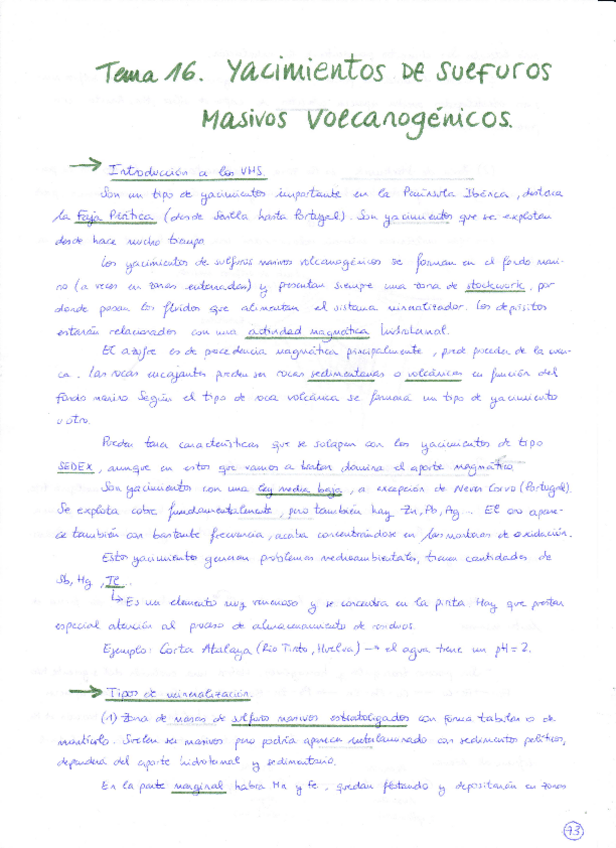 Tema 16. Yacimientos de Sulfuros
Masivos Volcanogénicos.
→ Introducción a los VHS.
Son un tipo de yacimientos importante en la Península Ibérica, destaca
la Faja Pirítica (desde Sevilla hasta Portugal). Son yacimientos que se explotan
desde hace mucho tiempo.
Los yacimientos de sulfuros masivos volcanogénicos se forman en el fondo mari-
no (a veces en zonas enterradas) y presentan siempre una zona de stockwork, por
donde pasan los fluidos que alimentan el sistema mineralizador. Los depósitos
estarán relacionados con una actividad magmática hidrotermal.
El azufre es de procedencia magmática principalmente, puede proceder de la
. Las rocas encajantes pueden ser rocas sedimentarias o volcánicas en función del
fondo marino. Según el tipo de roca volcánica se formará un tipo de yacimiento
u otro.
Pueden tener características que se solapan con los yacimientos de tipo
SEDEX, aunque en estos que vamos a tratar domina el aporte magmático.
Son yacimientos con una ley media baja, a excepción de Neves Corvo (Portugal).
Se explota cobre fundamentalmente, pero también hay Zn, Pb, Ag... El oro apare-
ce también con bastante frecuencia, acaba concentrándose en las monteras de oxidación.
Estos yacimientos generan problemas medioambientales, tienen cantidades de
Sb, Hg, Te...
↳ Es un elemento muy venenoso y se concentra en la pirita. Hay que prestar
especial atención al proceso de almacenamiento de residuos.
Ejemplo: Corta Atalaya (Rio Tinto, Huelva) → el agua tiene un pH = 2.
→ Tipos de mineralización.
(1) Zona de masas de sulfuros masivos estratoligados con forma tabular o de
montículo. Suelen ser masivos pero podría aparecer interlaminado con sedimentos pelíticos,
dependerá del aporte hidrotermal y sedimentario.
En la parte marginal habrá Mn y Fe, quedan flotando y depositarán en zonas
73